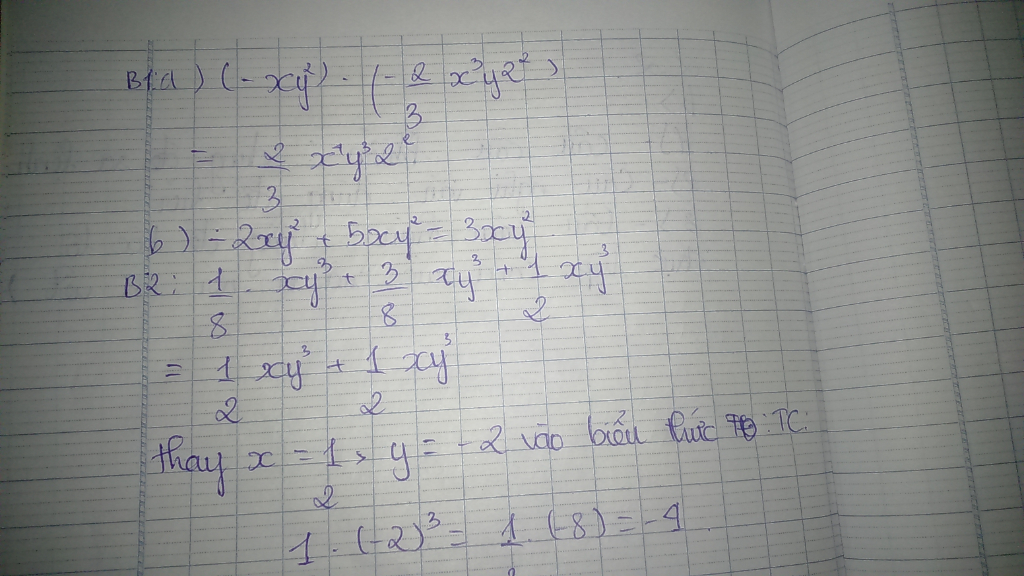 B1: a) (-xy²) . (-2/3 x³y2²)
= 2/3 x⁴y³2²
b) -2xy² + 5xy² = 3xy²
B2: 1/8 . xy³ + 3/8 xy³ + 1/2 xy³
= 1/2 xy³ + 1/2 xy³
thay x = 1/2, y = -2 vào biểu thức TC:
1 . (-2)³ = 1/2 . (-8) = -4